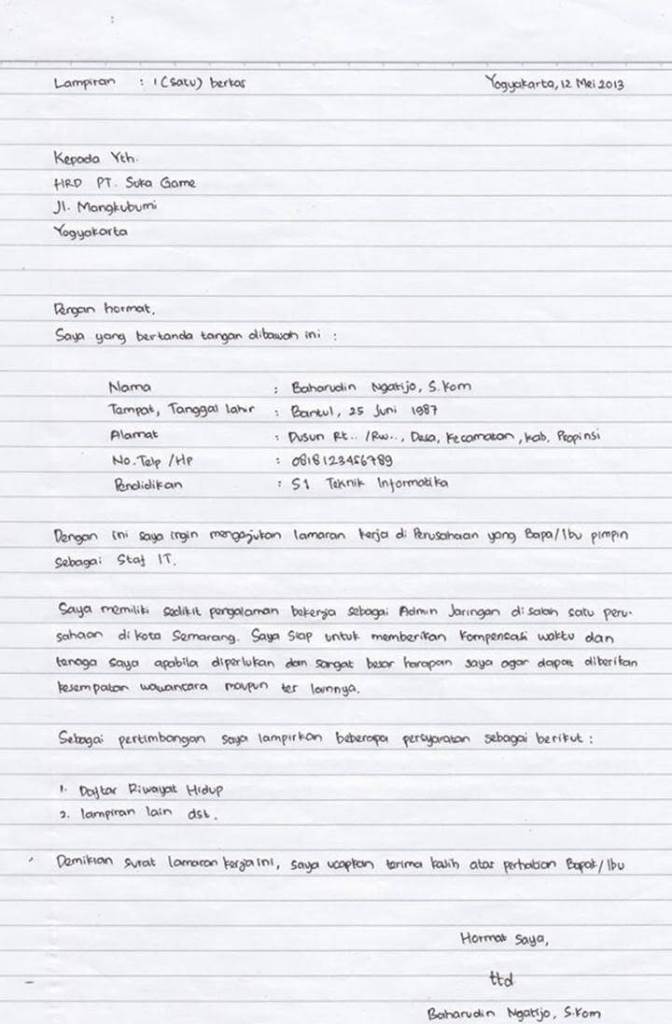 Lampiran : 1 (satu) berkas Yogyakarta, 12 Mei 2013
Kepada Yth.
HRD PT. Suka Game
Jl. Mangkubumi
Yogyakarta
Dengan hormat,
Saya yang bertanda tangan dibawah ini :
Nama : Baharudin Ngatijo, S.Kom
Tempat, Tanggal lahir : Bantul, 25 Juni 1987
Alamat : Dusun Rt.. /Rw.., Desa, Kecamatan, Kab, Propinsi
No. Telp /Hp : 0818123456789
Pendidikan : S1 Teknik Informatika
Dengan ini saya ingin mengajukan lamaran kerja di Perusahaan yang Bapa/Ibu pimpin
Sebagai Staf IT.
Saya memiliki sedikit pengalaman bekerja sebagai Admin Jaringan di salah satu peru-
sahaan di kota Semarang. Saya Siap untuk memberikan kompensasi waktu dan
tenaga saya apabila diperlukan dan sangat besar harapan saya agar dapat diberikan
kesempatan wawancara maupun tes lainnya.
Sebagai pertimbangan saya lampirkan beberapa persyaratan sebagai berikut :
1. Daftar Riwayat Hidup
2. lampiran lain dst.
Demikian surat lamaran kerja ini, saya ucapkan terima kasih atas perhatian Bapak/Ibu
Hormat Saya,
ttd
Baharudin Ngatijo, S.Kom